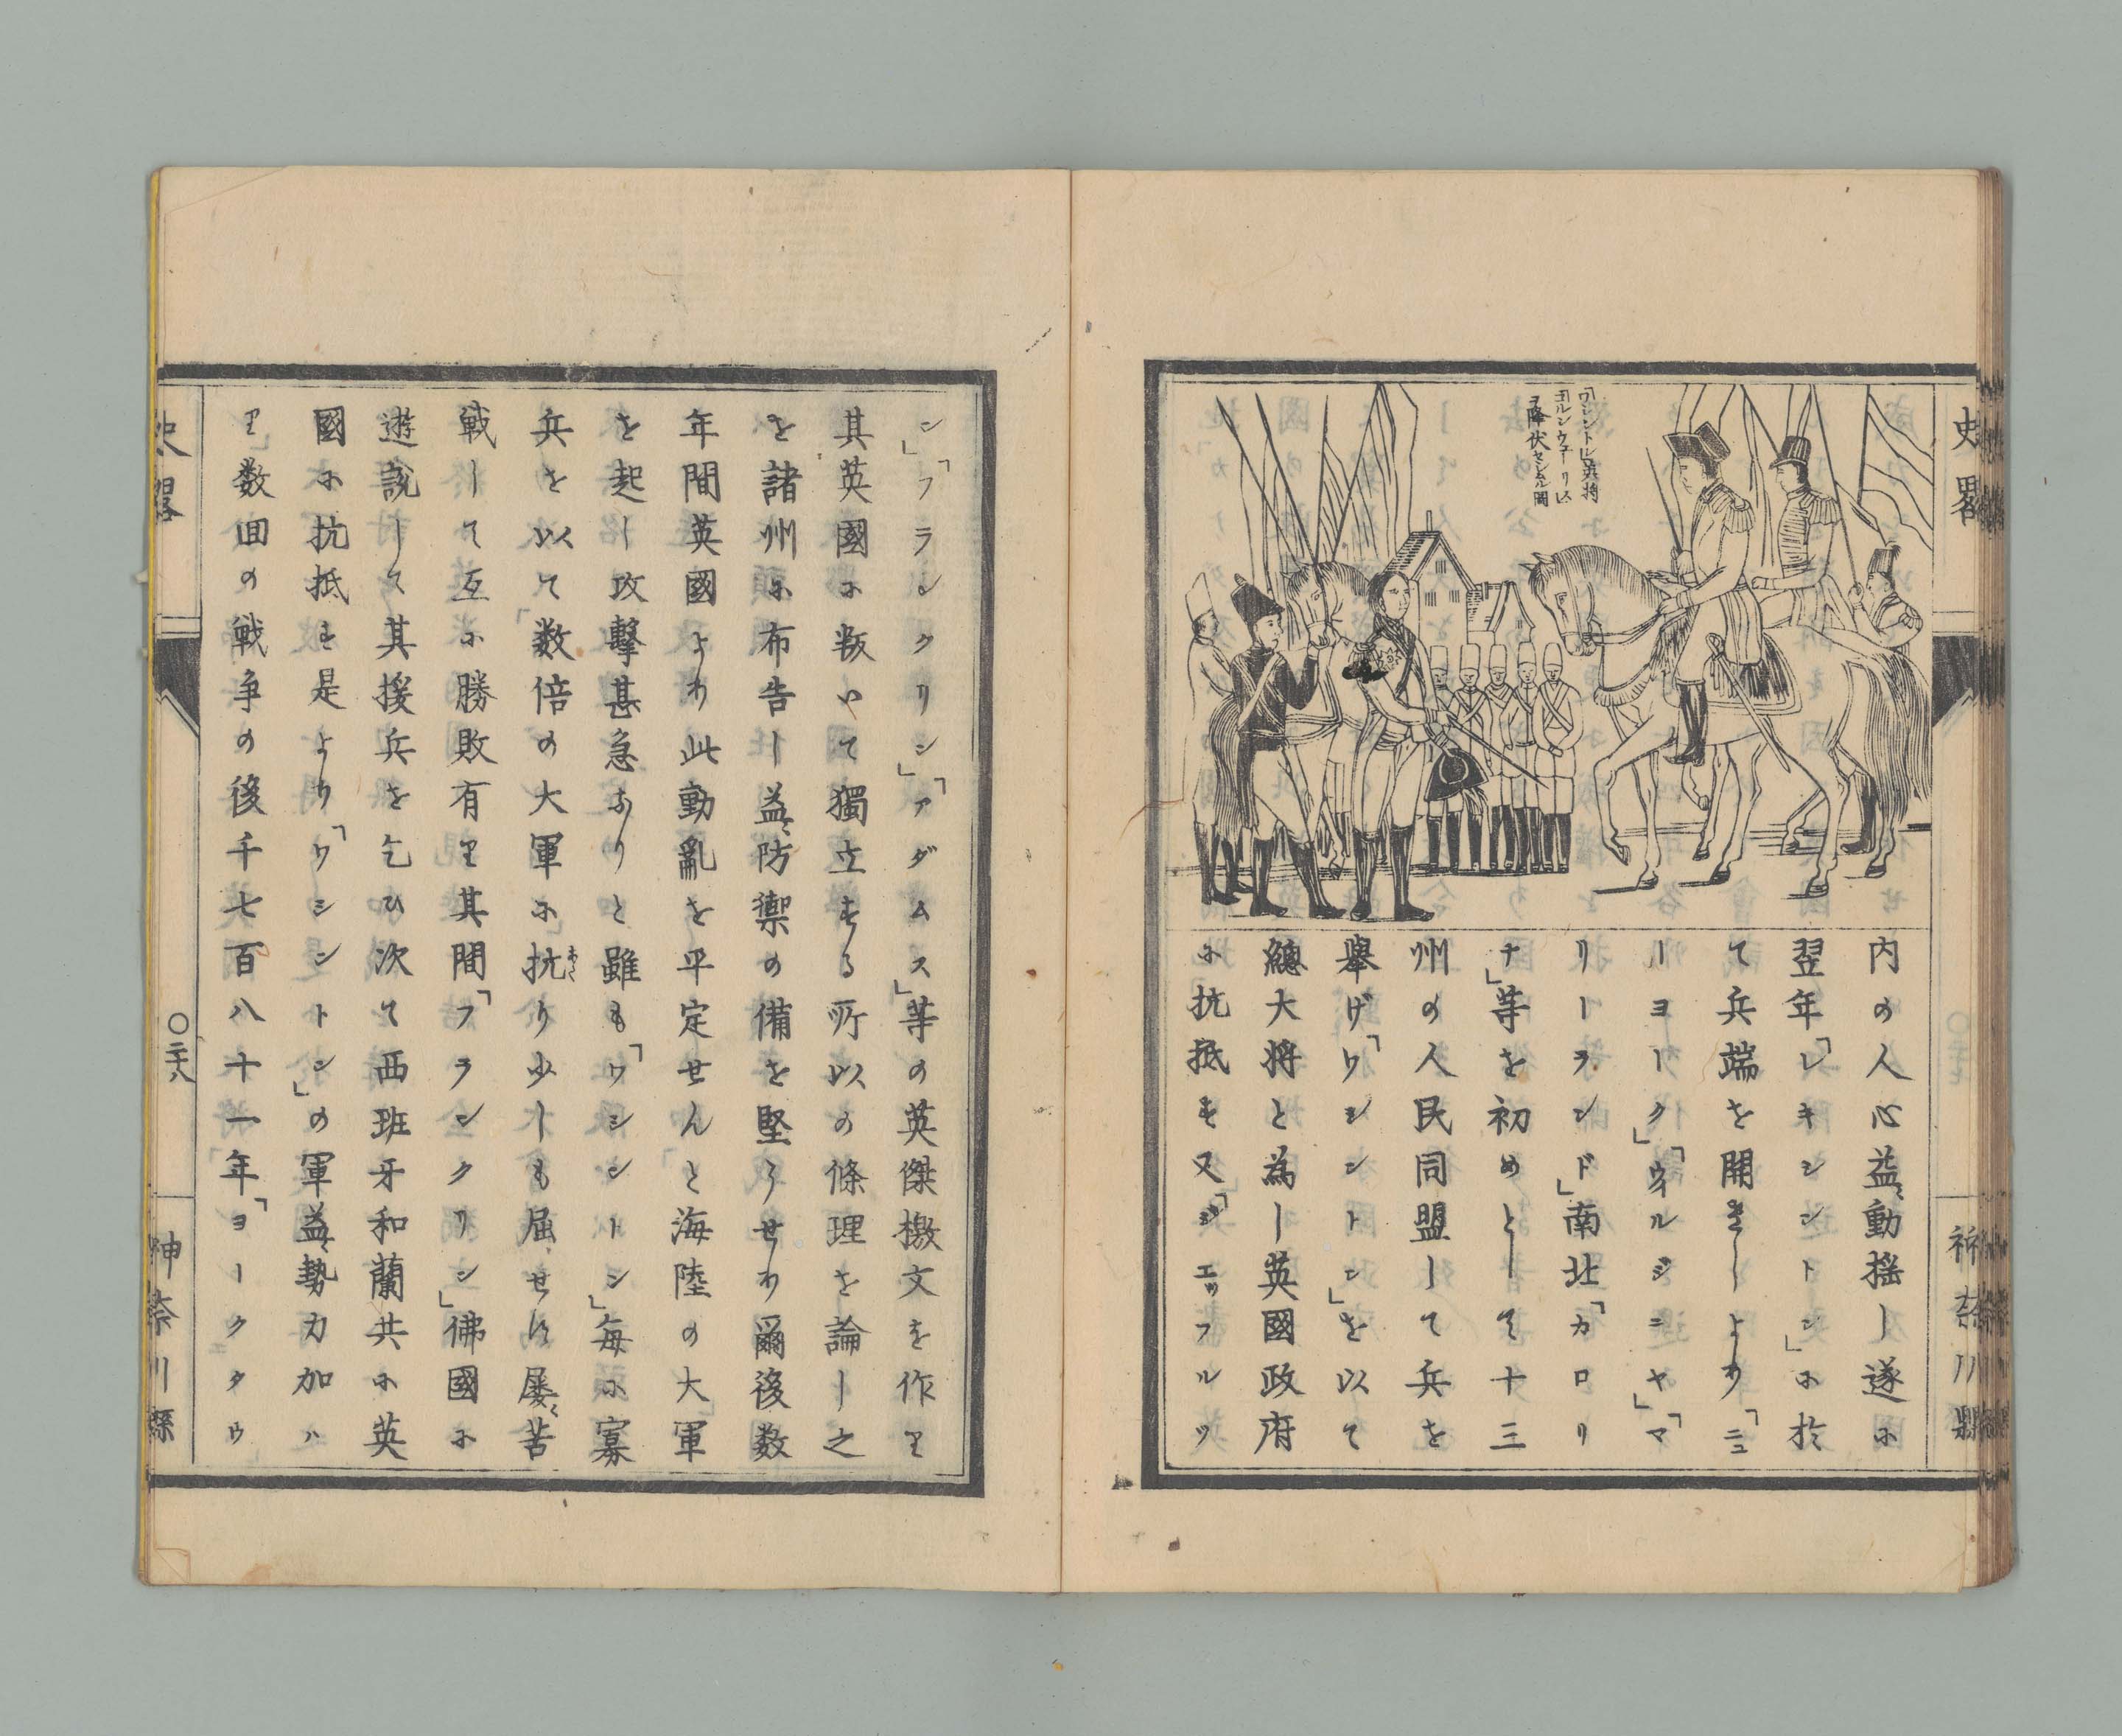 史畧
神奈川縣
「ワシントン」英將
「コルンウヲーリス」
ヲ降伏セシムル圖
内の人心益〻動揺し遂に
翌年「レキシントン」に於
て兵端を開きしより「ニユ
ーヨーク」「ウイルジニヤ」「マ
リーランド」南北「カロリ
ナ」等を初めとして十三
州の人民同盟して兵を
擧げ「ワシントン」を以て
總大将と為し英國政府
に抗抵す又「ジエッフルソ
ン」「フランクリン」「アダムス」等の英傑檄文を作り
其英國に叛いて獨立する所以の條理を論し之
を諸州に布告し益〻防禦の備を堅うせり爾後数
年間英國より此動亂を平定せんと海陸の大軍
を起し攻撃甚急なりと雖も「ワシントン」毎に寡
兵を以て数倍の大軍に抗り少しも屈せす屡〻苦
戦して互に勝敗有り其間「フランクリン」佛國に
遊説して其援兵を乞ひ次て西班牙和蘭共に英
國に抗抵す是より「ワシントン」の軍益〻勢力加ハ
り数回の戦争の後千七百八十一年「ヨークタウ
史畧
〇二十八
神奈川縣